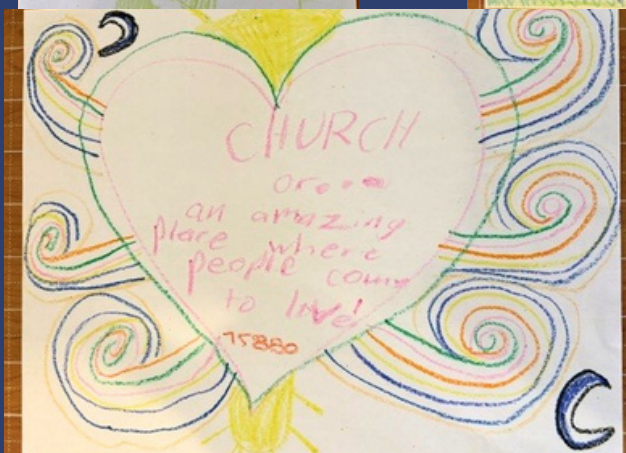 CHURCH
or...
an amazing
place where
people come
to love!
75880